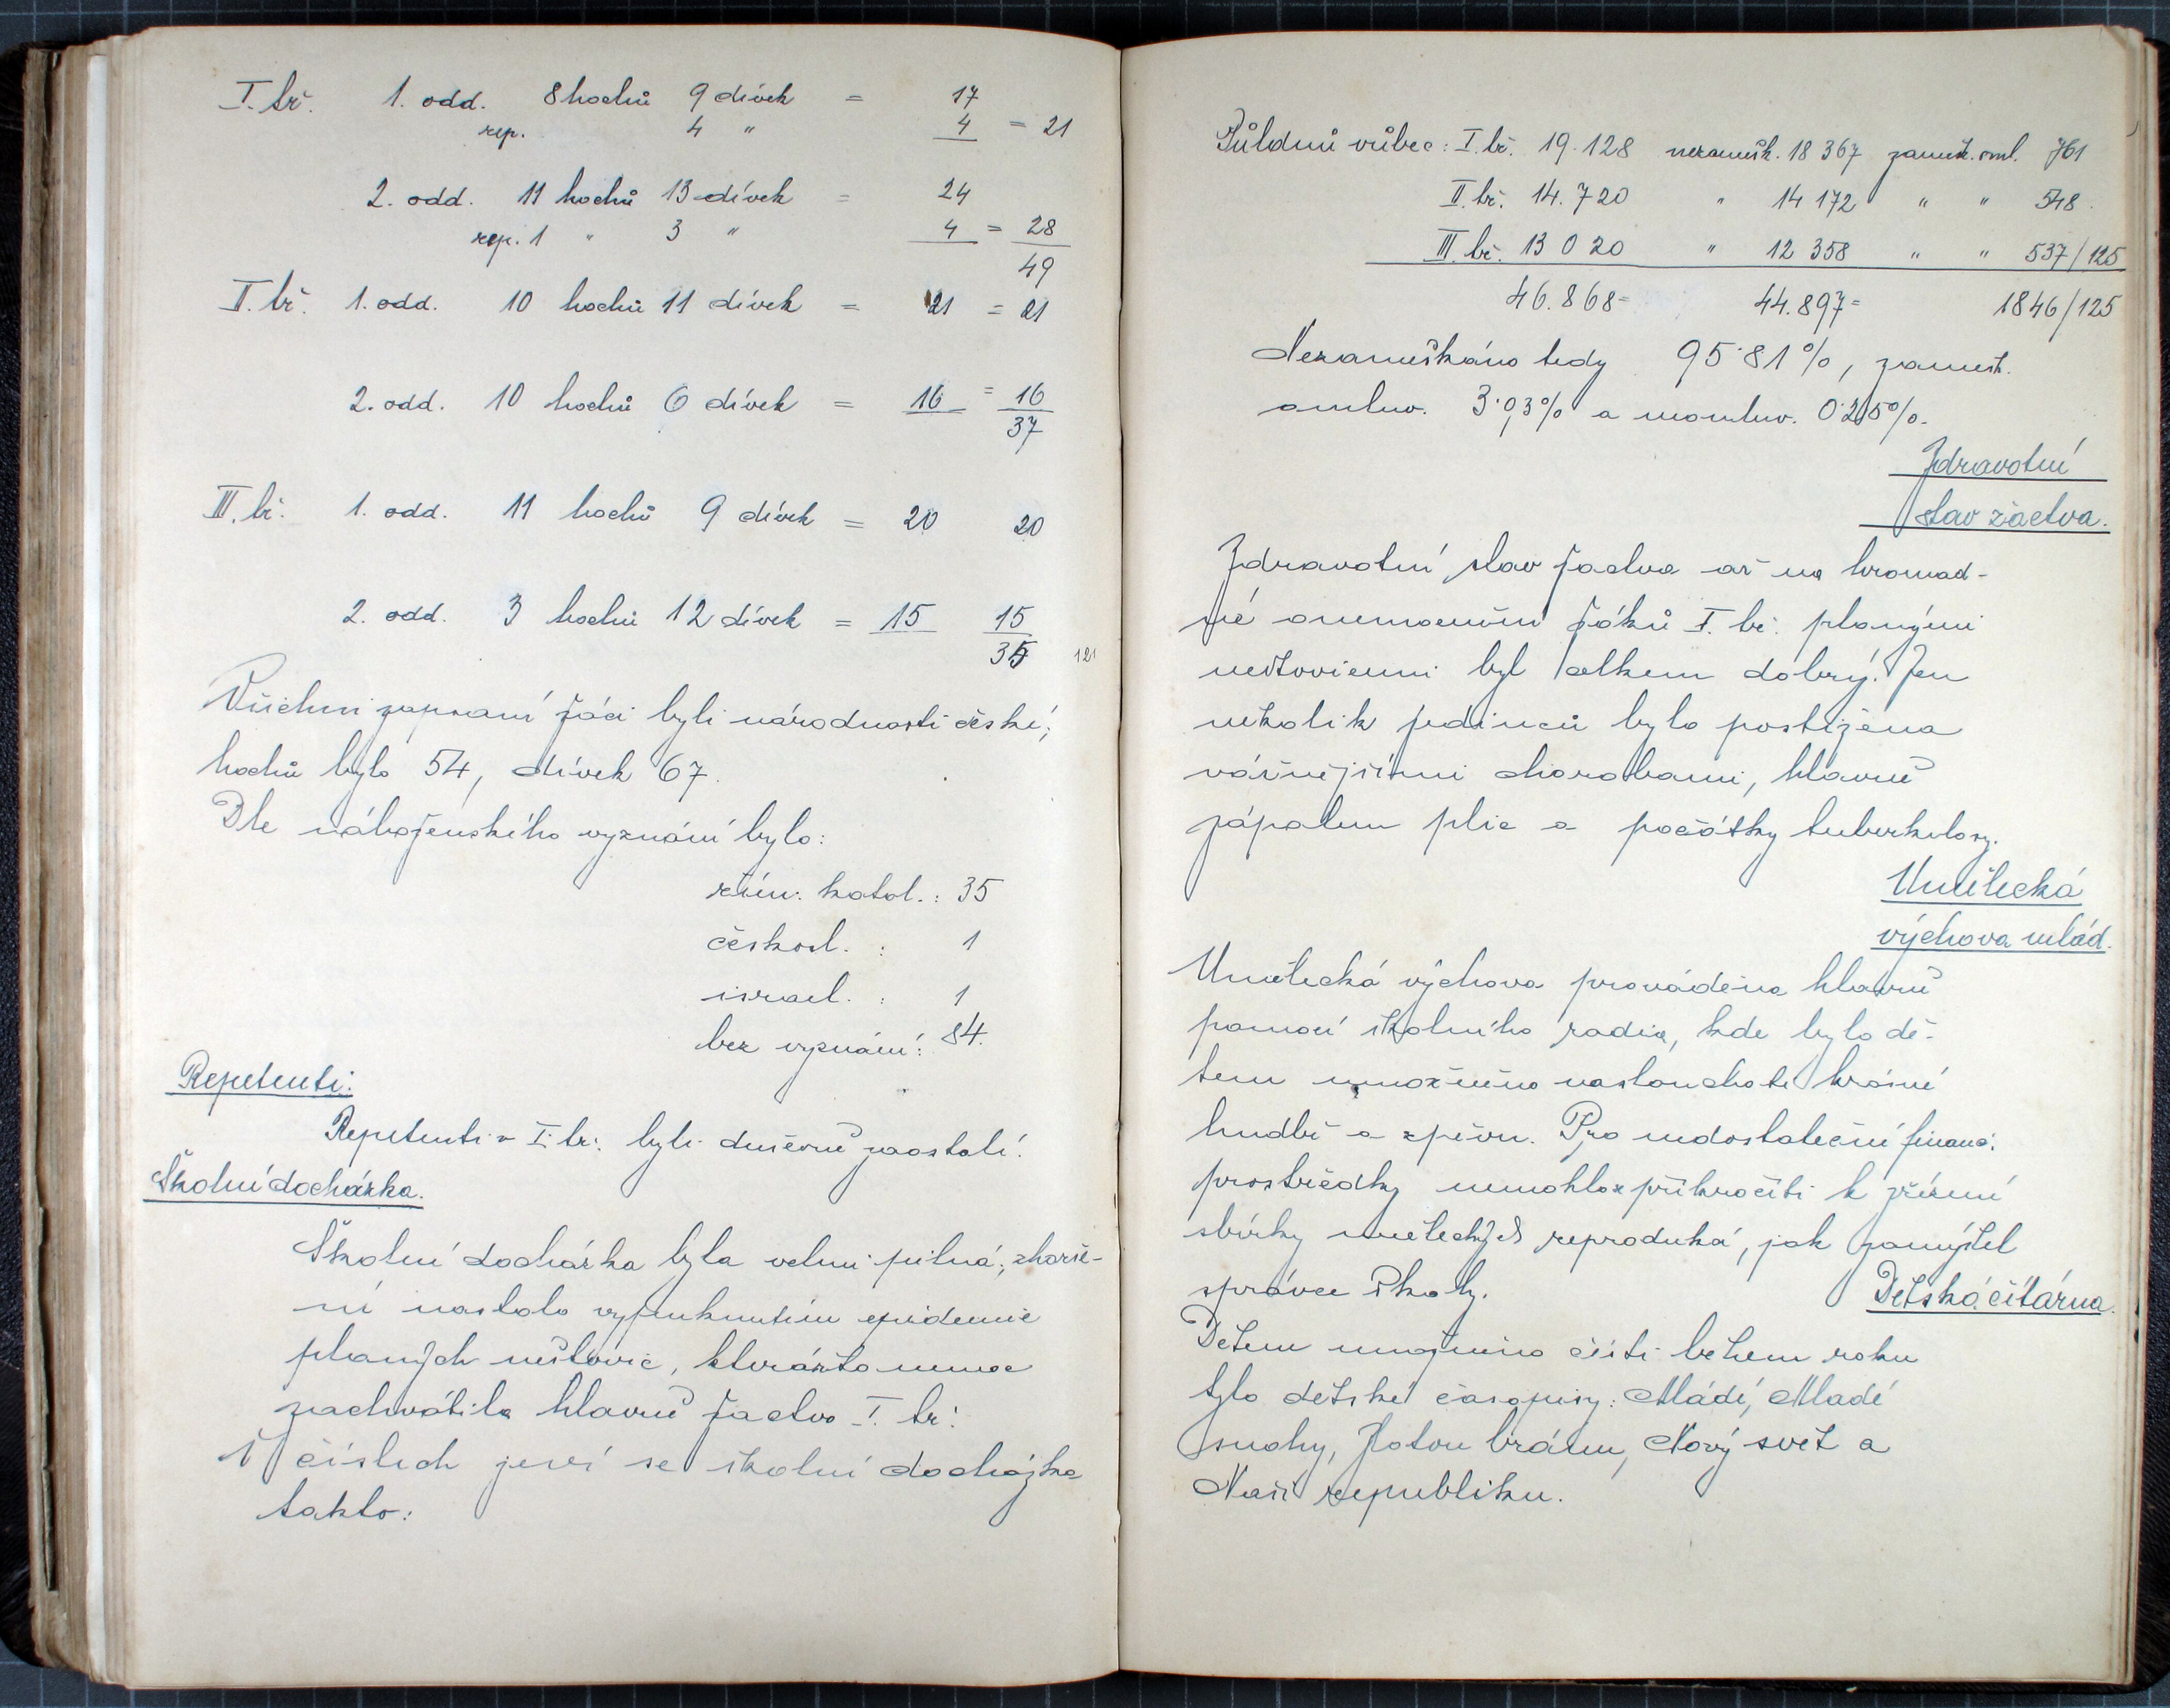 I. tř. 1. odd. 8 hochů 9 dívek = 17
rep. 4 " 4 = 21
2. odd. 11 hochů 13 dívek = 24
rep. 1 " 3 " 4 = 28
49
II. tř. 1. odd. 10 hochů 11 dívek = 21 = 21
2. odd. 10 hochů 6 dívek = 16 = 16
37
III. tř. 1. odd. 11 hochů 9 dívek = 20 20
2. odd. 3 hochů 12 dívek = 15 15
35 121
Všichni zapsaní žáci byli národnosti české;
hochů bylo 54, dívek 67.
Dle náboženského vyznání bylo:
řím. katol.: 35
českosl. : 1
israel. : 1
bez vyznání: 84.
Repetenti:
Repetenti v I. tř. byli duševně zaostalí.
Školní docházka.
Školní docházka byla velmi pilná; zhorše-
ní nastalo vypuknutím epidemie
planých neštovic, kterážto nemoc
zachvátila hlavně žactvo I. tř.
V číslech jeví se školní docházka
takto:
Půldnů vůbec: I. tř. 19.128 nezamešk. 18 367 zamešk. oml. 761
II. tř. 14.720 " 14 172 " " 548.
III. tř. 13 020 " 12 358 " " 537/125
46.868= 44.897= 1846/125
Nezameškáno tedy 95·81%, zamešk.
omluv. 3·93% a neomluv. 0·25%.
Zdravotní
stav žactva.
Zdravotní stav žactva až na hromad-
né onemocnění žáků I. tř. planými
neštovicemi byl celkem dobrý. Jen
několik jedinců bylo postiženo
vážnějšími chorobami, hlavně
zápalem plic a počátky tuberkulosy.
Umělecká
výchova mlád.
Umělecká výchova prováděna hlavně
pomocí školního radia, kde bylo dě-
tem umožněno naslouchati krásné
hudbě a zpěvu. Pro nedostatečné financ.
prostředky nemohlo přikročiti k zřízení
sbírky uměleckých reprodukcí, jak zamýšlel
správce školy.
Dětská čítárna.
Dětem umožněno čísti během roku
tyto dětské časopisy: Mládí, Mladé
snahy, Zlatou bránu, Nový svět a
Naši republiku.